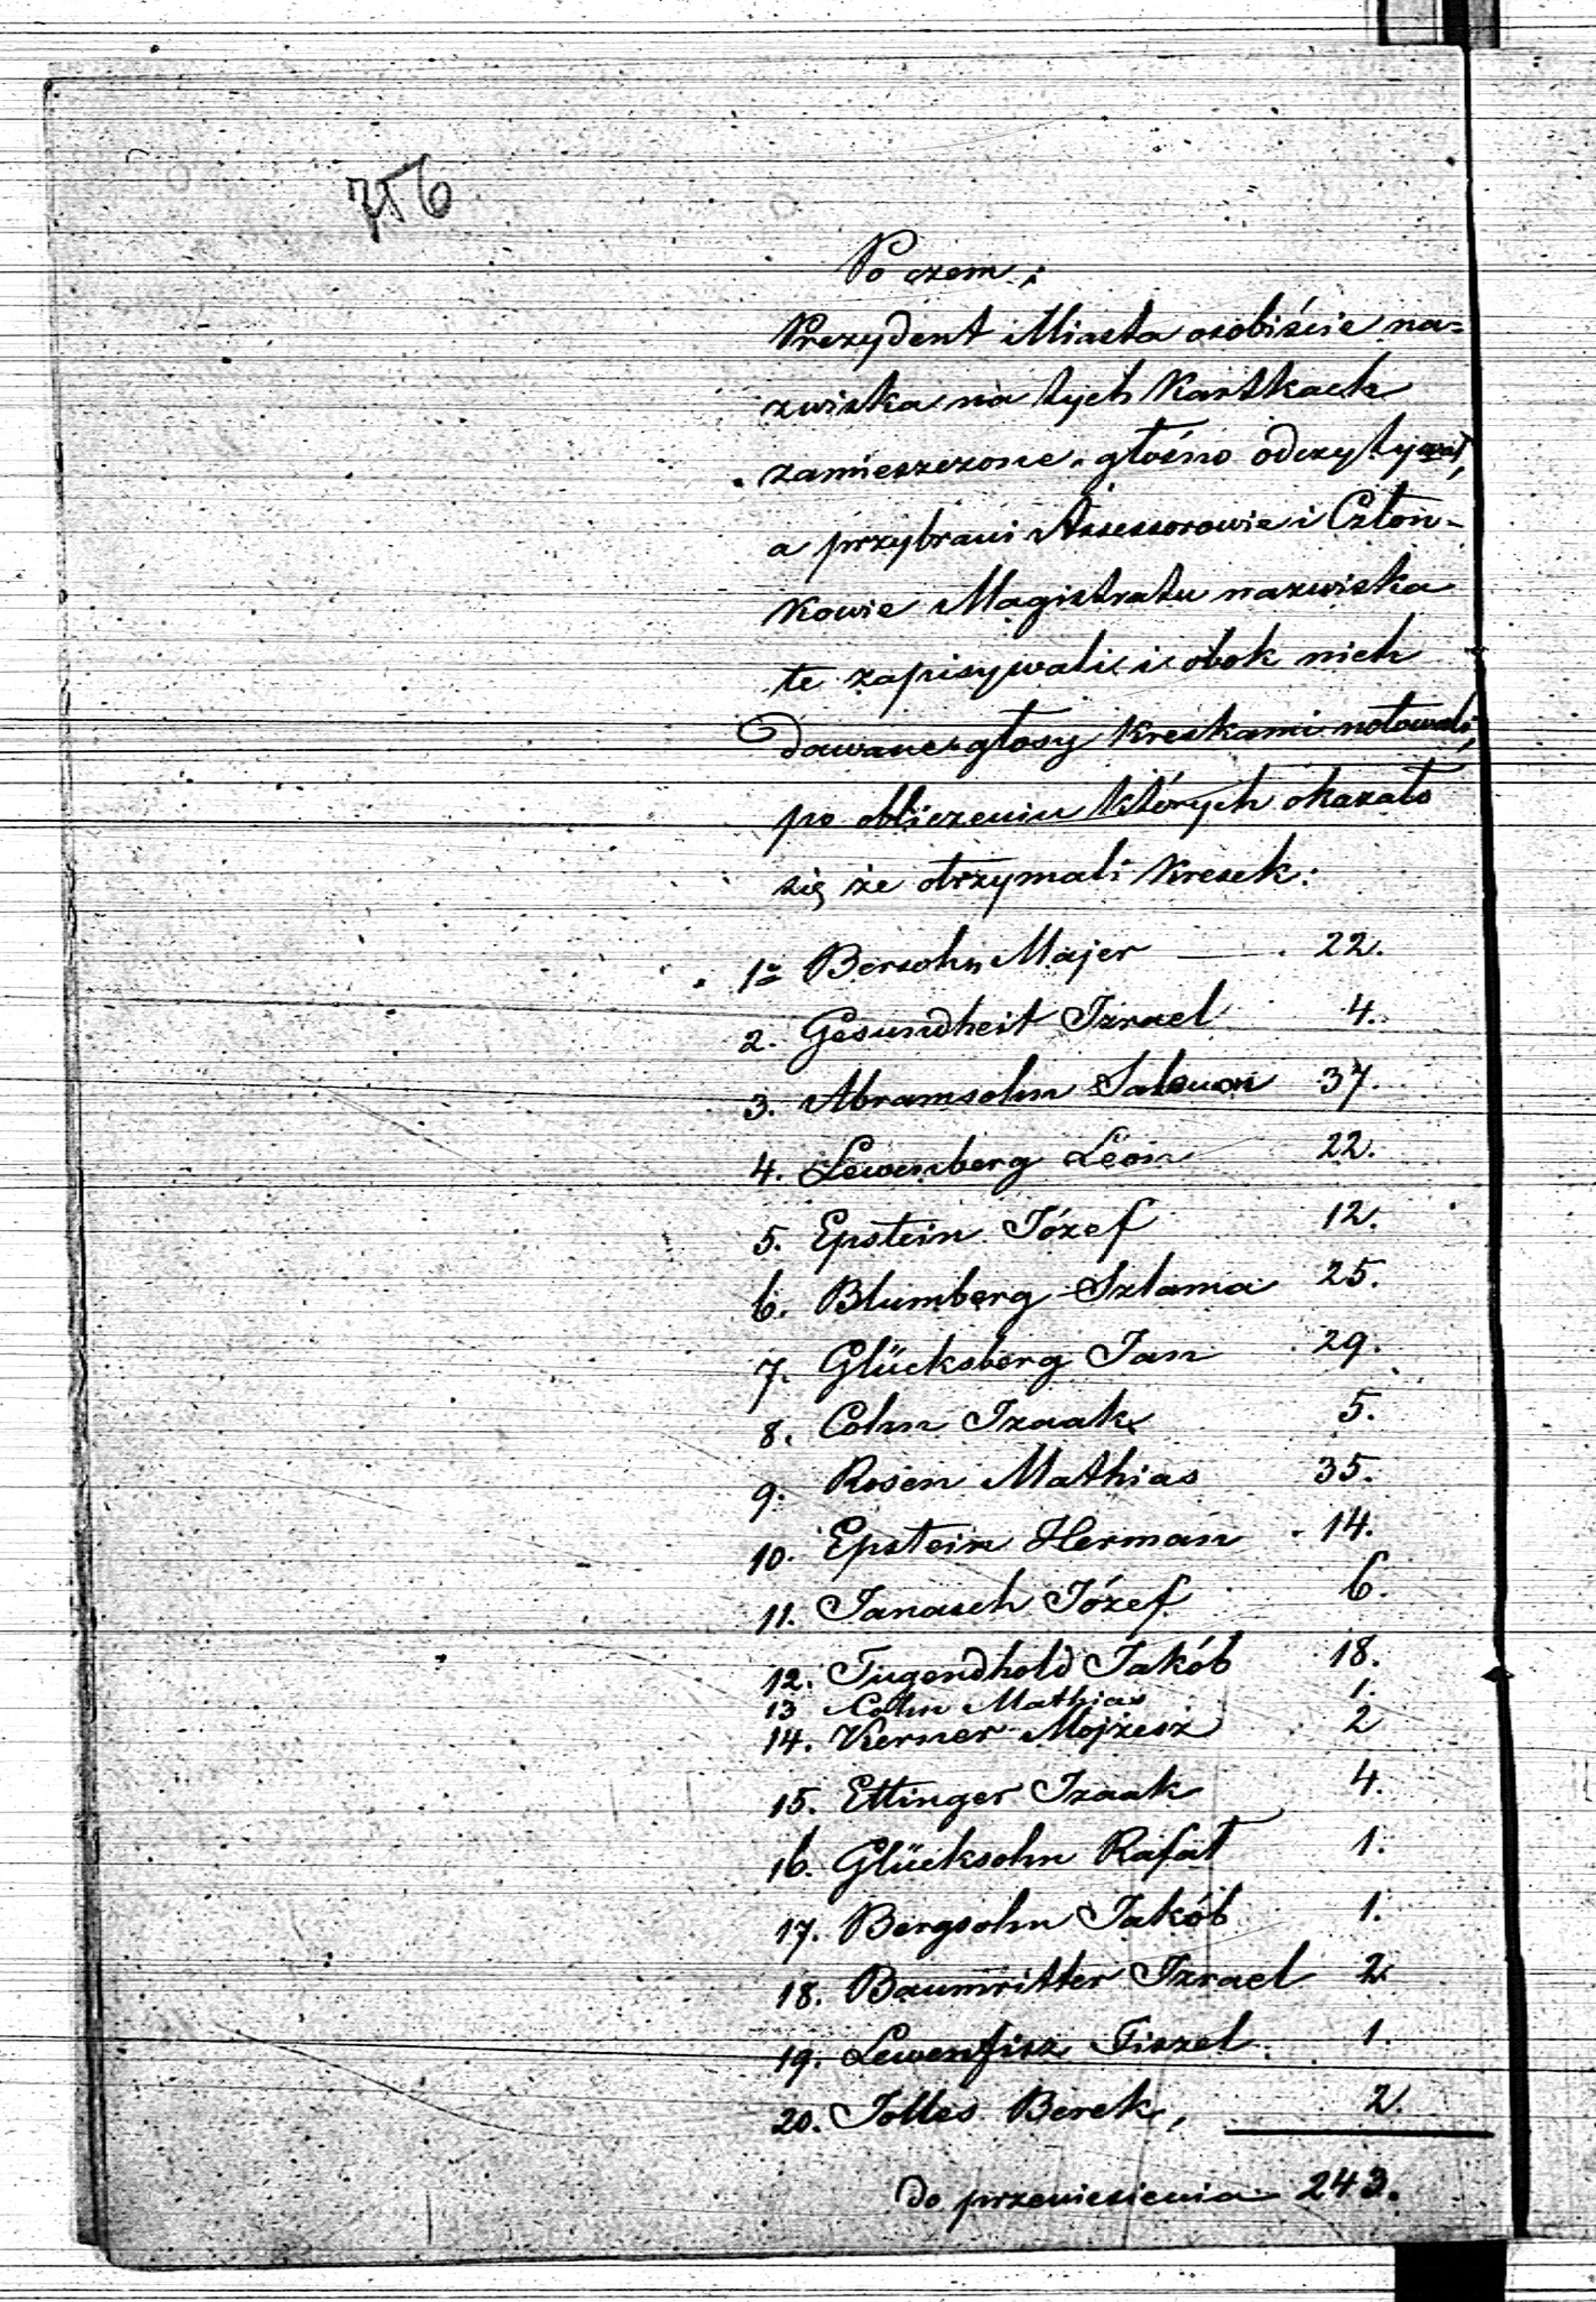 756
Po czem;
Prezydent Miasta osobiście na=
zwiska na tych Kartkach
zamieszczone, głośno odczytywał,
a przybrani Assessorowie i Człon-
kowie Magistratu nazwiska
te zapisywali i obok nich
dawane głosy Kreskami notowali,
po obliczeniu których okazało
się że otrzymali Kresek:
1o Bersohn Majer — 22.
2. Gesundheit Izrael 4.
3. Abramsohn Salomon 37.
4. Lewenberg Leon 22.
5. Epstein Józef 12.
6. Blumberg Szlama 25.
7. Glücksberg Jan 29.
8. Cohn Izaak 5.
9. Rosen Mathias 35.
10. Epstein Herman 14.
11. Janasch Józef 6.
12. Tugendhold Jakób 18.
13 Cohn Mathias 1.
14. Kerner Mojżesz 2
15. Ettinger Izaak 4.
16. Glücksohn Rafał 1.
17. Bergsohn Jakób 1.
18. Baumritter Izrael 2
19. Lewenfisz Fiszel 1.
20. Jolles Berek, 2.
Do przeniesienia 243.